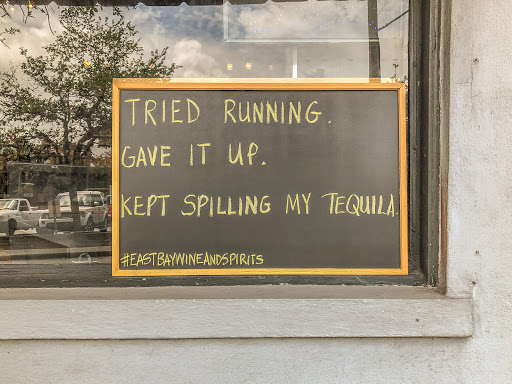 TRIED RUNNING.
GAVE IT UP.
KEPT SPILLING MY TEQUILA.
#EASTBAYWINEANDSPIRITS